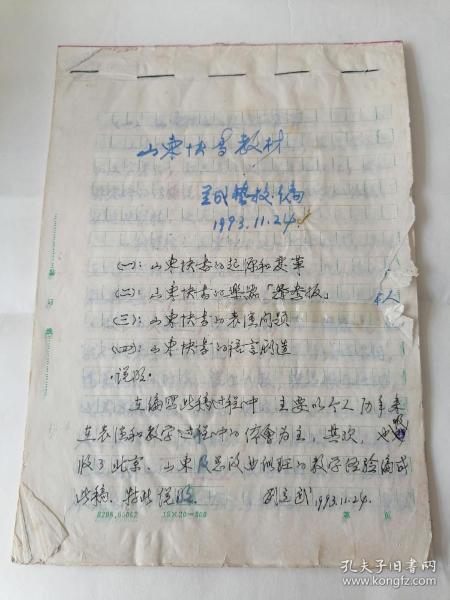 山东快书教材
艺校编
1993.11.24.
(一):山东快书的起源和变革
(二):山东快书的乐器「鸳鸯板」
(三):山东快书的表演问题
(四):山东快书的语言创造
·说明·
在编写此稿过程中 主要以个人历年来
在表演和教学过程中的体会为主,其次,也吸
收了北京、山东及总政曲训班的教学经验编成
此稿.特此说明 1993.11.24.
本人
15×20=300
第 页
孔夫子旧书网
www.kongfz.com